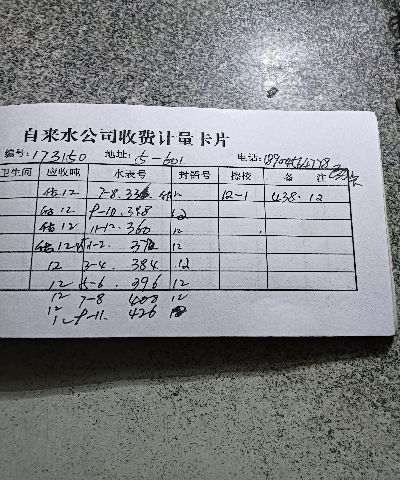 自来水公司收费计量卡片
编号: 173150 地址: 5-601 电话:
卫生间 应收吨 水表号 封铅号 备 注
估12 7-8. 336 估12 12-1 438. 12
估12 9-10. 348 12
估12 11-12. 360 12
估12 1-2. 372 12
12 3-4. 384 12
12 5-6. 396 12
12 7-8 12
12 9-11. 426